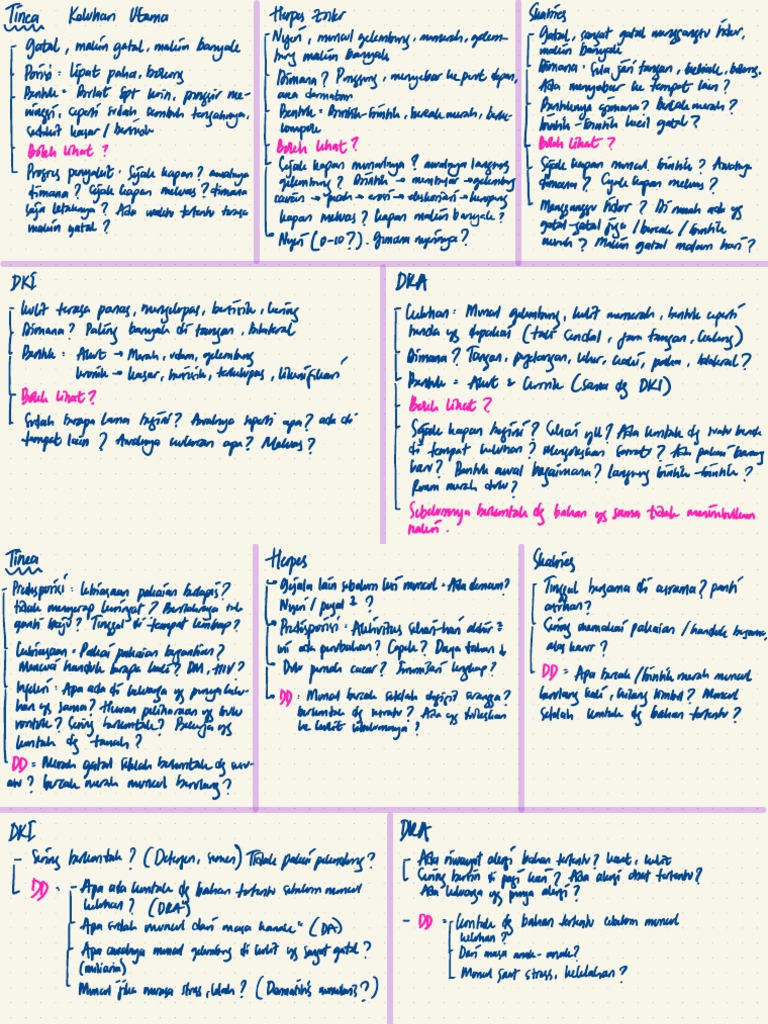 Tinea Keluhan Utama
- Gatal, makin gatal, makin banyak
- Posisi: lipat paha, bokong
- Bentuk = Bulat spt koin, pinggir me-
ninggi, seperti sudah sembuh tengahnya,
sedikit kasar / bersisik
- Boleh lihat?
- Progres penyakit: Sejak kapan? awalnya
dimana? Sejak kapan meluas? dimana
saja letaknya? Ada waktu tertentu terasa
makin gatal?
Herpes Zoster
- Nyeri, muncul gelembung, memerah, gelem-
bung makin banyak
- Dimana? Punggung, menyebar ke perut depan,
area dermatom
- Bentuk = Bintik-bintik, bercak merah, berke-
lompok
- Boleh lihat?
- Sejak kapan munculnya? awalnya langsung
gelembung? Bintik → membesar → gelembung
cairan → pecah → erosi → →
kapan meluas? kapan makin banyak?
- Nyeri (0-10?). Gimana nyerinya?
Skabies
- Gatal, sangat gatal mengganggu tidur,
makin banyak
- Dimana = Sela jari tangan, bokong.
Ada menyebar ke tempat lain?
- Bentuknya gimana? Bercak merah?
bintik-bintik kecil gatal?
- Boleh lihat?
- Sejak kapan muncul bintik? Awalnya
dimana? Sejak kapan meluas?
- Mengganggu tidur? Di rumah ada yg
gatal-gatal juga / bercak / bintik
merah? Makin gatal malam hari?
DKI
- Kulit terasa panas, mengelupas, bersisik, kering
- Dimana? Paling banyak di tangan, bilateral
- Bentuk = Akut → Merah, edem, gelembung
kronik → kasar, bersisik, terkelupas, likenifikasi
- Boleh lihat?
- Sudah berapa lama begini? Awalnya seperti apa? ada di
tempat lain? Awalnya ukuran apa? Meluas?
DKA
- Keluhan: Muncul gelembung, kulit memerah, bentuk seperti
benda yg dipakai (tali sandal, jam tangan, kalung)
- Dimana? Tangan, pergelangan, leher, kaki, paha, bilateral?
- Bentuk = Akut & kronik (sama dg DKI)
- Boleh lihat?
- Sejak kapan begini? Sehari yll? Ada kontak dg suatu benda
di tempat keluhan? Mengoleskan sesuatu? Ada pakai barang
baru? Bentuk awal bagaimana? Langsung bintik-bintik?
Ruam merah dulu?
- Sebelumnya berkontak dg bahan yg sama tidak menimbulkan
reaksi.
Tinea
- Predisposisi: Kebiasaan pakaian berlapis?
tidak menyerap keringat? Berkeringat tdk
ganti baju? Tinggal di tempat lembap?
- Kebiasaan: Pakai pakaian bergantian?
Mencuci handuk berapa kali? DM, HIV?
- Infeksi: Apa ada di keluarga yg punya kelu-
han yg sama? Hewan peliharaan yg bulu
rontok? Sering berkontak? Bekerja yg
kontak dg tanah?
- DD = Merah gatal setelah berkontak dg ses-
atu? bercak merah muncul berulang?
Herpes
- Gejala lain sebelum lesi muncul = Ada demam?
Nyeri / pegal²?
- Predisposisi = Aktivitas sehari-hari akhir²
ini ada perubahan? Capek? Daya tahan ↓
- Dulu pernah cacar? Imunisasi lengkap?
- DD: Muncul bercak setelah digigit serangga?
berkontak dg sesuatu? Ada yg dioleskan
ke kulit sebelumnya?
Skabies
- Tinggal bersama di asrama? panti
asuhan?
- Sering memakai pakaian / handuk bersama,
alas kasur?
- DD = Apa bercak / bintik merah muncul
berulang kali, hilang timbul? Muncul
setelah kontak dg bahan tertentu?
DKI
- Sering berkontak? (Detergen, semen) Tidak pakai pelindung?
- DD = - Apa ada kontak dg bahan tertentu sebelum muncul
keluhan? (DKA)
- Apa sudah muncul dari masa kanak² (DA)
- Apa awalnya muncul gelembung di kulit yg sangat gatal?
(miliaria)
- Muncul jika merasa stres, lelah? (Dermatitis numularis?)
DKA
- Ada riwayat alergi bahan tertentu? kulit
Sering bersin di pagi hari? Ada alergi obat tertentu?
Ada keluarga yg punya alergi?
- DD = - Kontak dg bahan tertentu sebelum muncul
keluhan?
- Dari masa anak-anak?
- Muncul saat stress, kelelahan?